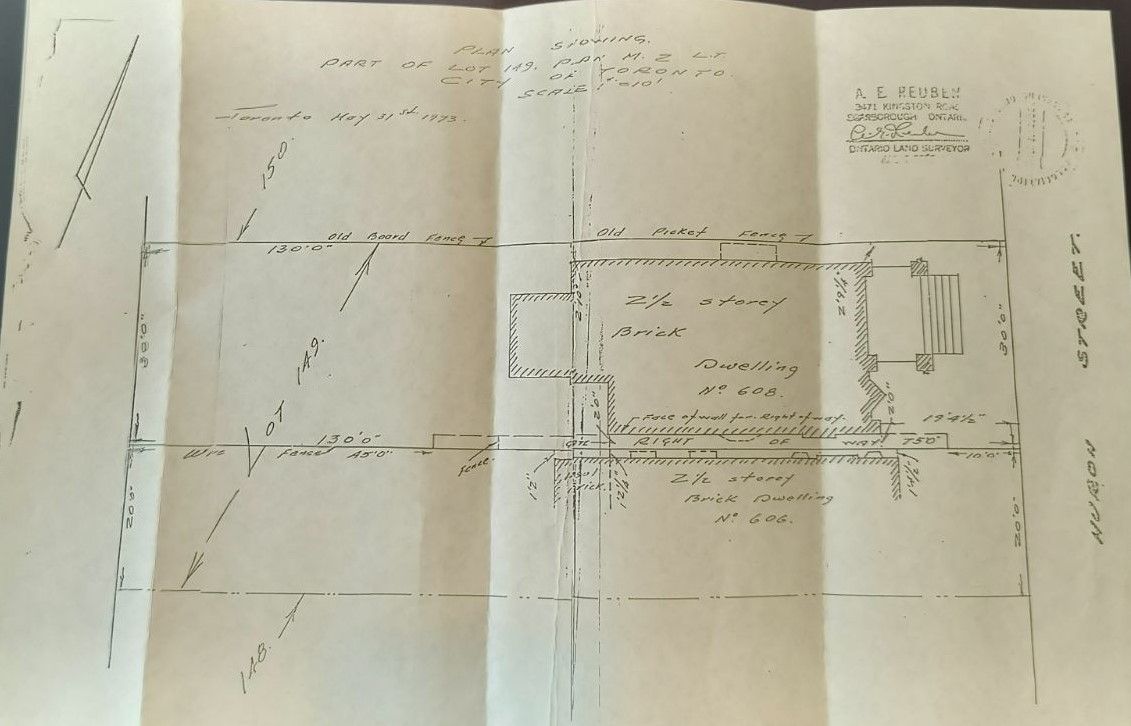 PLAN SHOWING
PART OF LOT 149. PLAN M. 2 L.T.
CITY OF TORONTO.
SCALE 1"=10'
Toronto May 31st 1973.
A. E. REUBEN
3471 KINGSTON ROAD
SCARBOROUGH ONTARIO
ONTARIO LAND SURVEYOR
150.
Old Board Fence
130'0"
Old Picket Fence
30'0"
149.
2 1/2 storey
Brick
Dwelling
No 608.
30'0"
STREET.
Face of wall for Right of way.
2'0"
2'0"
19'4 1/2"
LOT
130'0"
Wire Fence
45'0"
Fence
RIGHT OF WAY
75'0"
10'0"
1'2"
2 1/2 storey
Brick Dwelling
No 606.
20'0"
20'0"
HURON
148.